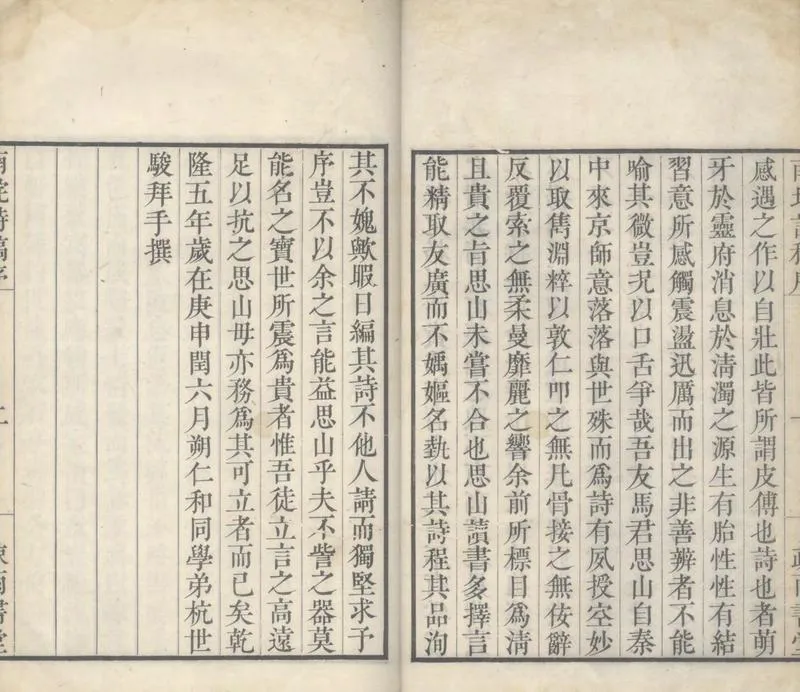 感遇之作以自壯此皆所謂皮傅也詩也者萌
牙於靈府消息於淸濁之源生有胎性性有結
習意所感觸震盪迅厲而出之非善辨者不能
喻其微豈況以口舌爭哉吾友馬君思山自秦
中來京師意落落與世殊而爲詩有夙授空妙
以取雋淵粹以敦仁叩之無凡骨接之無佞辭
反覆索之無柔曼靡麗之響余前所標目爲淸
且貴之旨思山未嘗不合也思山讀書多擇言
能精取友廣而不嫗名埶以其詩程其品洵
其不媿歟暇日編其詩不他人請而獨堅求予
序豈不以余之言能益思山乎夫不訾之器莫
能名之寶世所震爲貴者惟吾徒立言之高遠
足以抗之思山毋亦務爲其可立者而已矣乾
隆五年歲在庚申閏六月朔仁和同學弟杭世
駿拜手撰